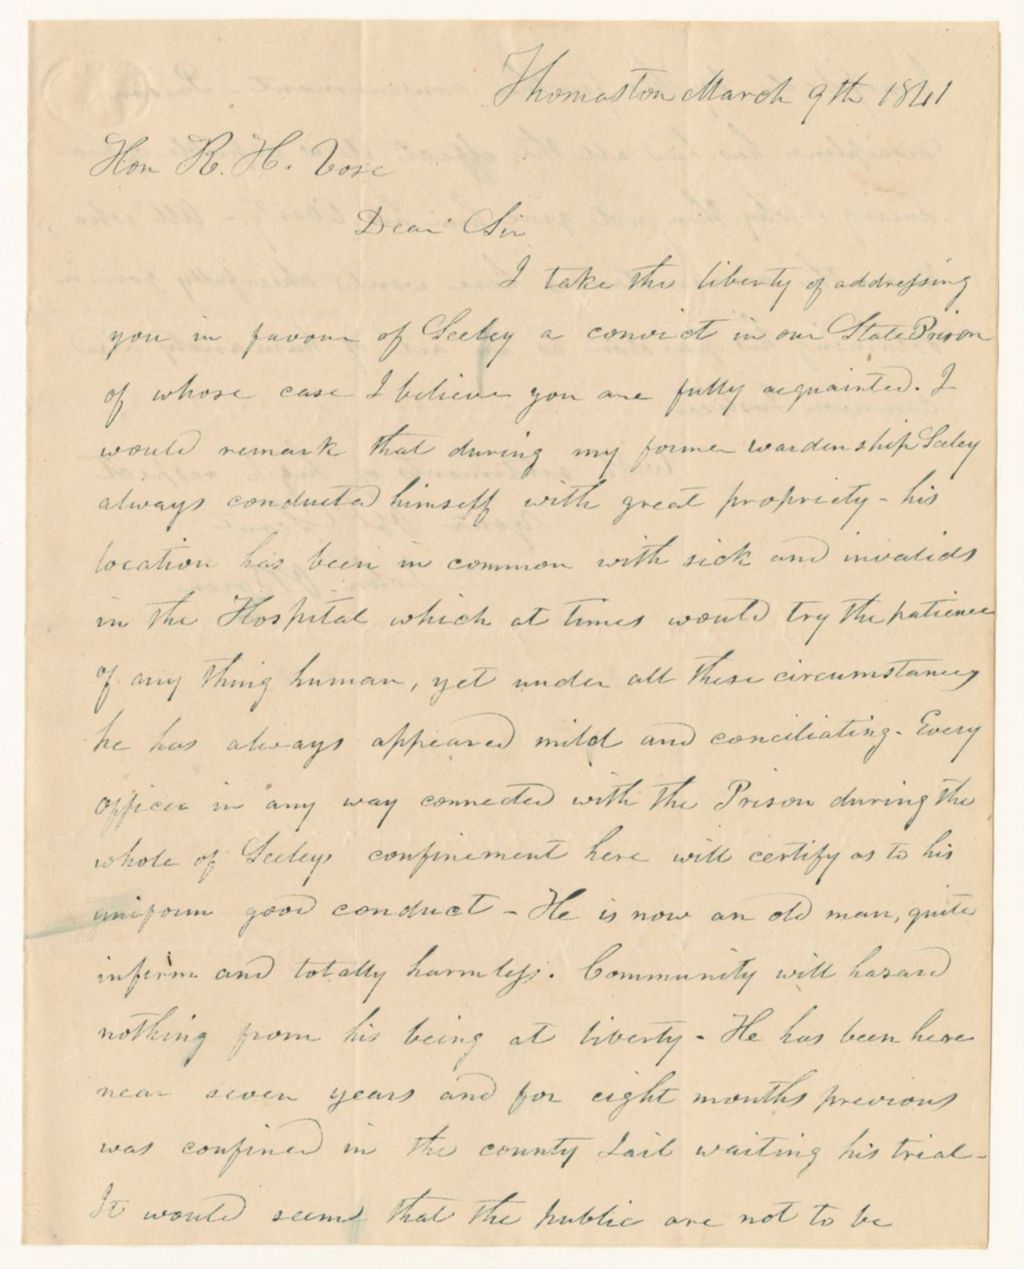 Thomaston March 9th 1841
Hon R. H. Vose
Dear Sir
I take the liberty of addressing
you in favour of Seeley a convict in our State Prison
of whose case I believe you are fully acquainted. I
would remark that during my former wardenship Seeley
always conducted himself with great propriety - his
location has been in common with sick and invalids
in the Hospital which at times would try the patience
of any thing human, yet under all these circumstances
he has always appeared mild and conciliating. Every
officer in any way connected with the Prison during the
whole of Seeleys confinement here will certify as to his
uniform good conduct - He is now an old man, quite
infirm and totally harmless. Community will hazard
nothing from his being at liberty - He has been here
near seven years and for eight months previous
was confined in the county Jail waiting his trial -
It would seem that the public are not to be